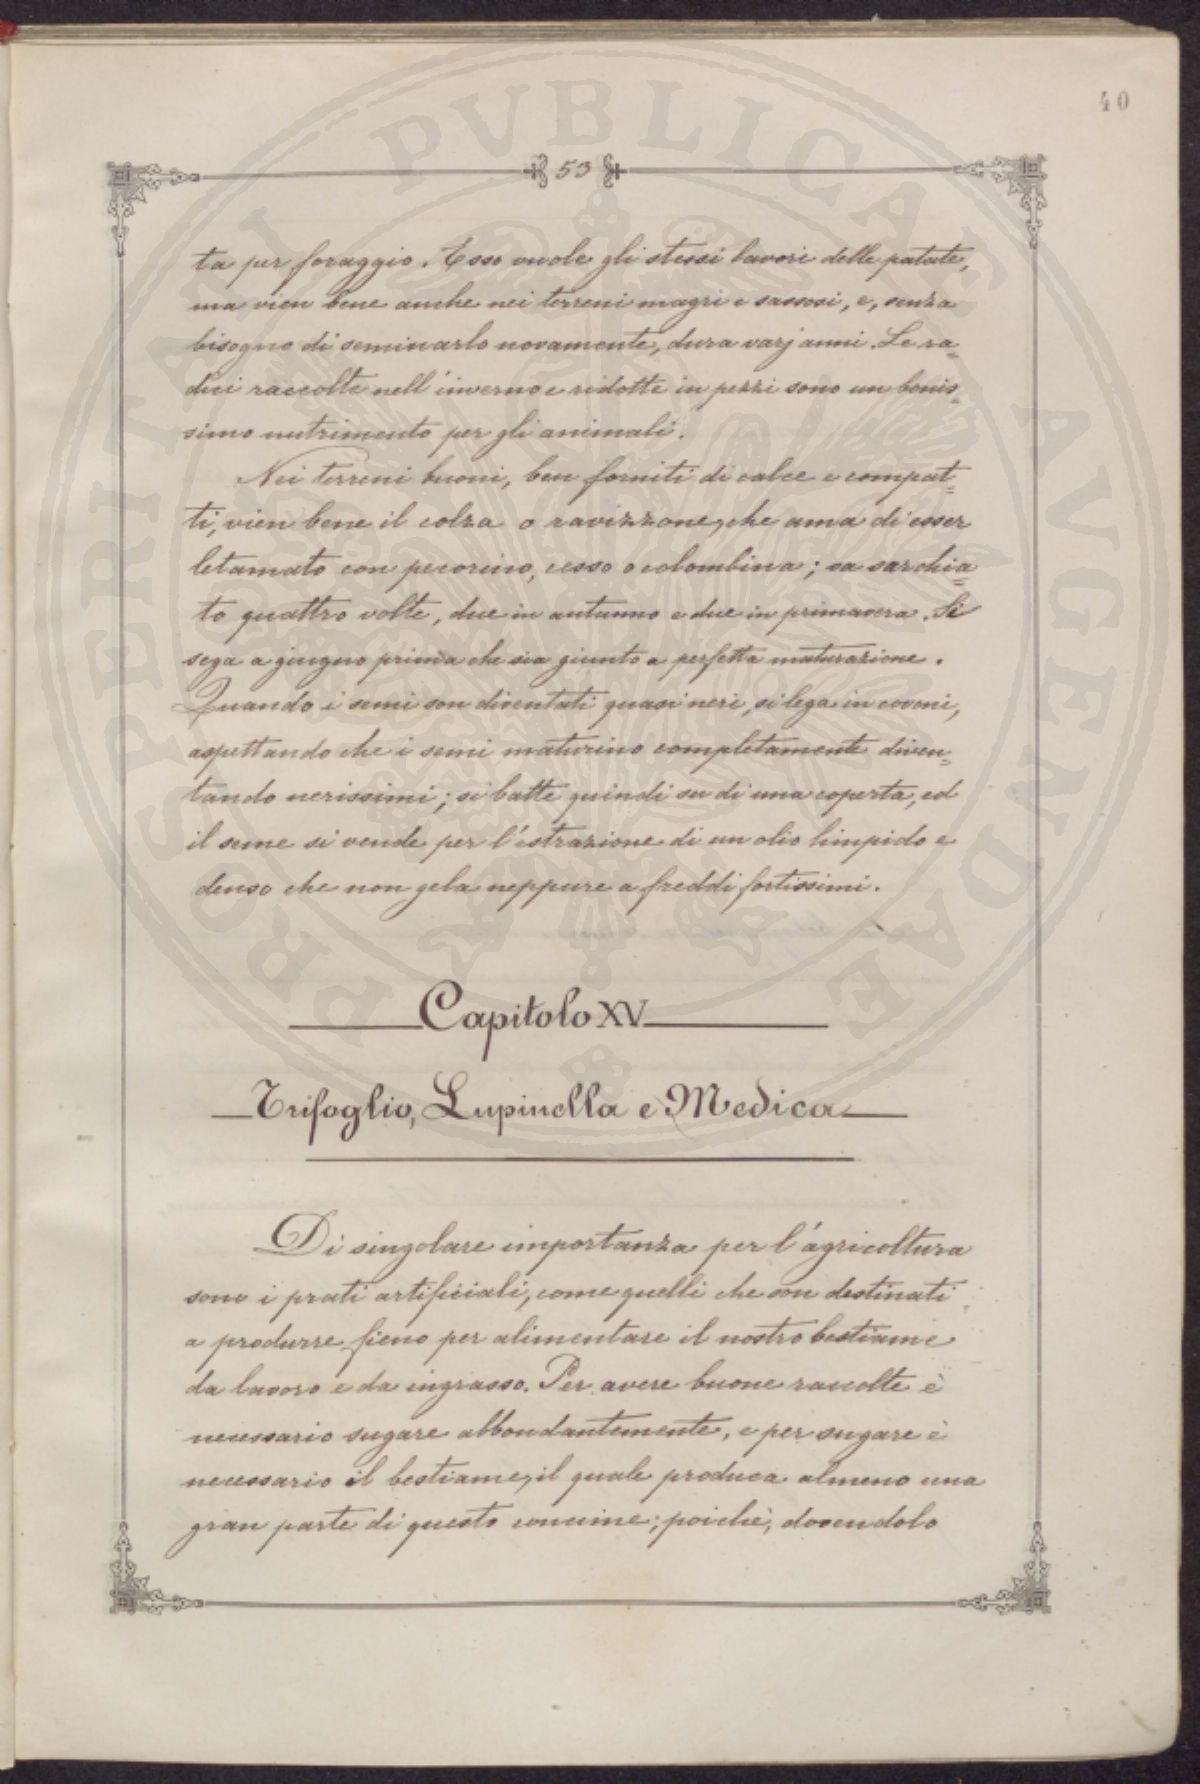 40
53
ta per foraggio. Esso vuole gli stessi lavori delle patate,
ma vien bene anche nei terreni magri e sassosi, e, senza
bisogno di seminarlo novamente, dura varj anni. Le ra=
dici raccolte nell'inverno e ridotte in pezzi sono un bonis=
simo nutrimento per gli animali.
Nei terreni buoni, ben forniti di calce e compat=
ti, vien bene il colza o ravizzone, che ama di esser
letamato con pecorino, cesso o colombina; va sarchia=
to quattro volte, due in autunno e due in primavera. Si
sega a giugno prima che sia giunto a perfetta maturazione.
Quando i semi son diventati quasi neri, si lega in covoni,
aspettando che i semi maturino completamente diven=
tando nerissimi; si batte quindi su di una coperta, ed
il seme si vende per l'estrazione di un olio limpido e
denso che non gela neppure a freddi fortissimi.
Capitolo XV
Trifoglio, Lupinella e Medica
Di singolare importanza per l'agricoltura
sono i prati artificiali, come quelli che son destinati
a produrre fieno per alimentare il nostro bestiame
da lavoro e da ingrasso. Per avere buone raccolte è
necessario sugare abbondantemente, e per sugare è
necessario il bestiame, il quale produca almeno una
gran parte di questo concime; poichè, dovendolo
PROSPERITATI PVBLICAE AVGENDAE